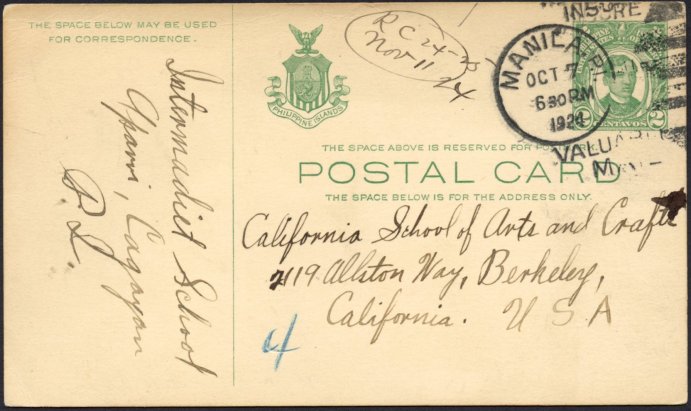 THE SPACE BELOW MAY BE USED
FOR CORRESPONDENCE.
Intermadiet School
Aparri, Cagayan
P. I.
PHILIPPINE ISLANDS
R C 24-25
Nov 11 24
INSURE
VALUABLE
MAIL
MANILA P.I.
OCT 7
6 30 PM
1924
2 CENTAVOS 2
THE SPACE ABOVE IS RESERVED FOR POSTMARK.
POSTAL CARD
THE SPACE BELOW IS FOR THE ADDRESS ONLY.
California School of Arts and Crafts
2119 Allston Way, Berkeley,
California. U S A
4